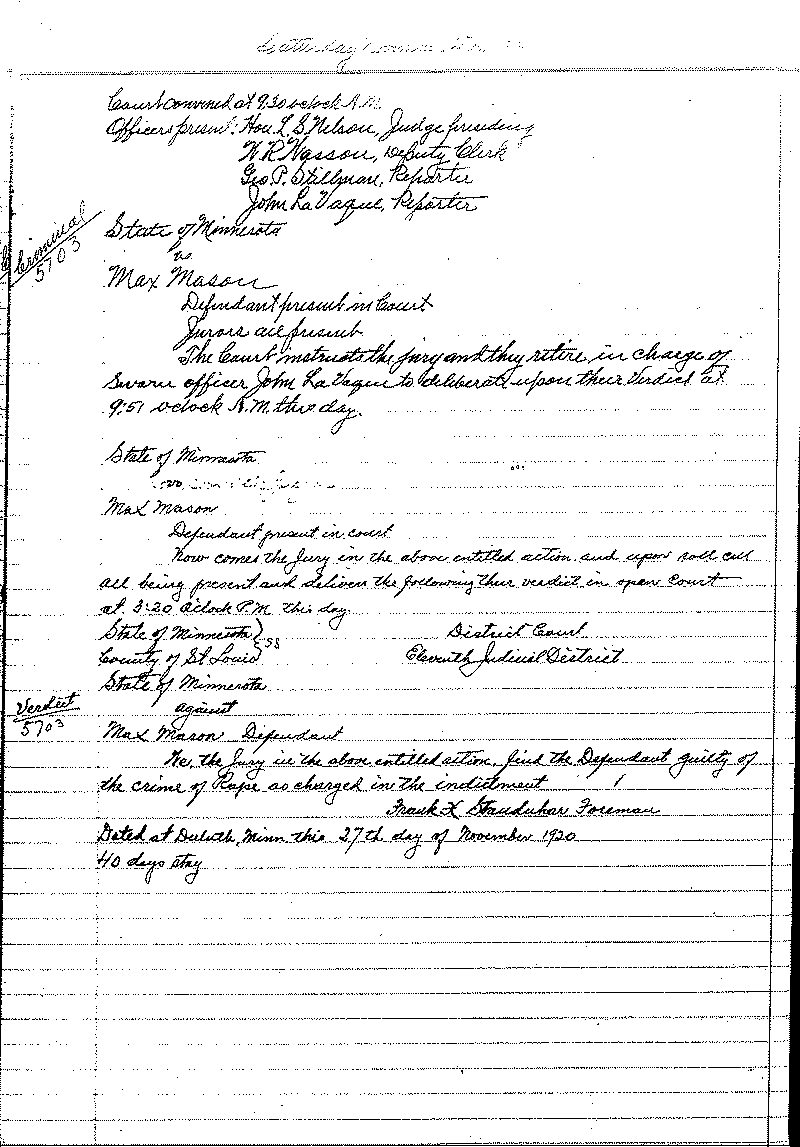 Saturday
Court convened at 9.30 oclock A.M.
Officers present: Hon L. S. Nelson, Judge presiding
W R Wasson, Deputy Clerk
Geo P. Stillman, Reporter
John La Vaque, Reporter
Criminal
5703
State of Minnesota
vs.
Max Mason
Defendant present in Court
Jurors all present
The Court instructs the jury and they retire in charge of
sworn officer John La Vaque to deliberate upon their Verdict at
9:51 oclock A.M. this day.
State of Minnesota
vs
Max Mason
Defendant present in court
Now comes the Jury in the above entitled action and upon roll call
all being present and deliver the following their verdict in open Court
at 3:20 oclock P.M. this day.
State of Minnesota } ss District Court
County of St Louis Eleventh Judicial District
State of Minnesota
against
Verdict
5703
Max Mason Defendant
We, the Jury in the above entitled action, find the Defendant guilty of
the crime of Rape as charged in the indictment
Frank X Standuhar Foreman
Dated at Duluth, Minn this 27th day of November 1920
40 days stay